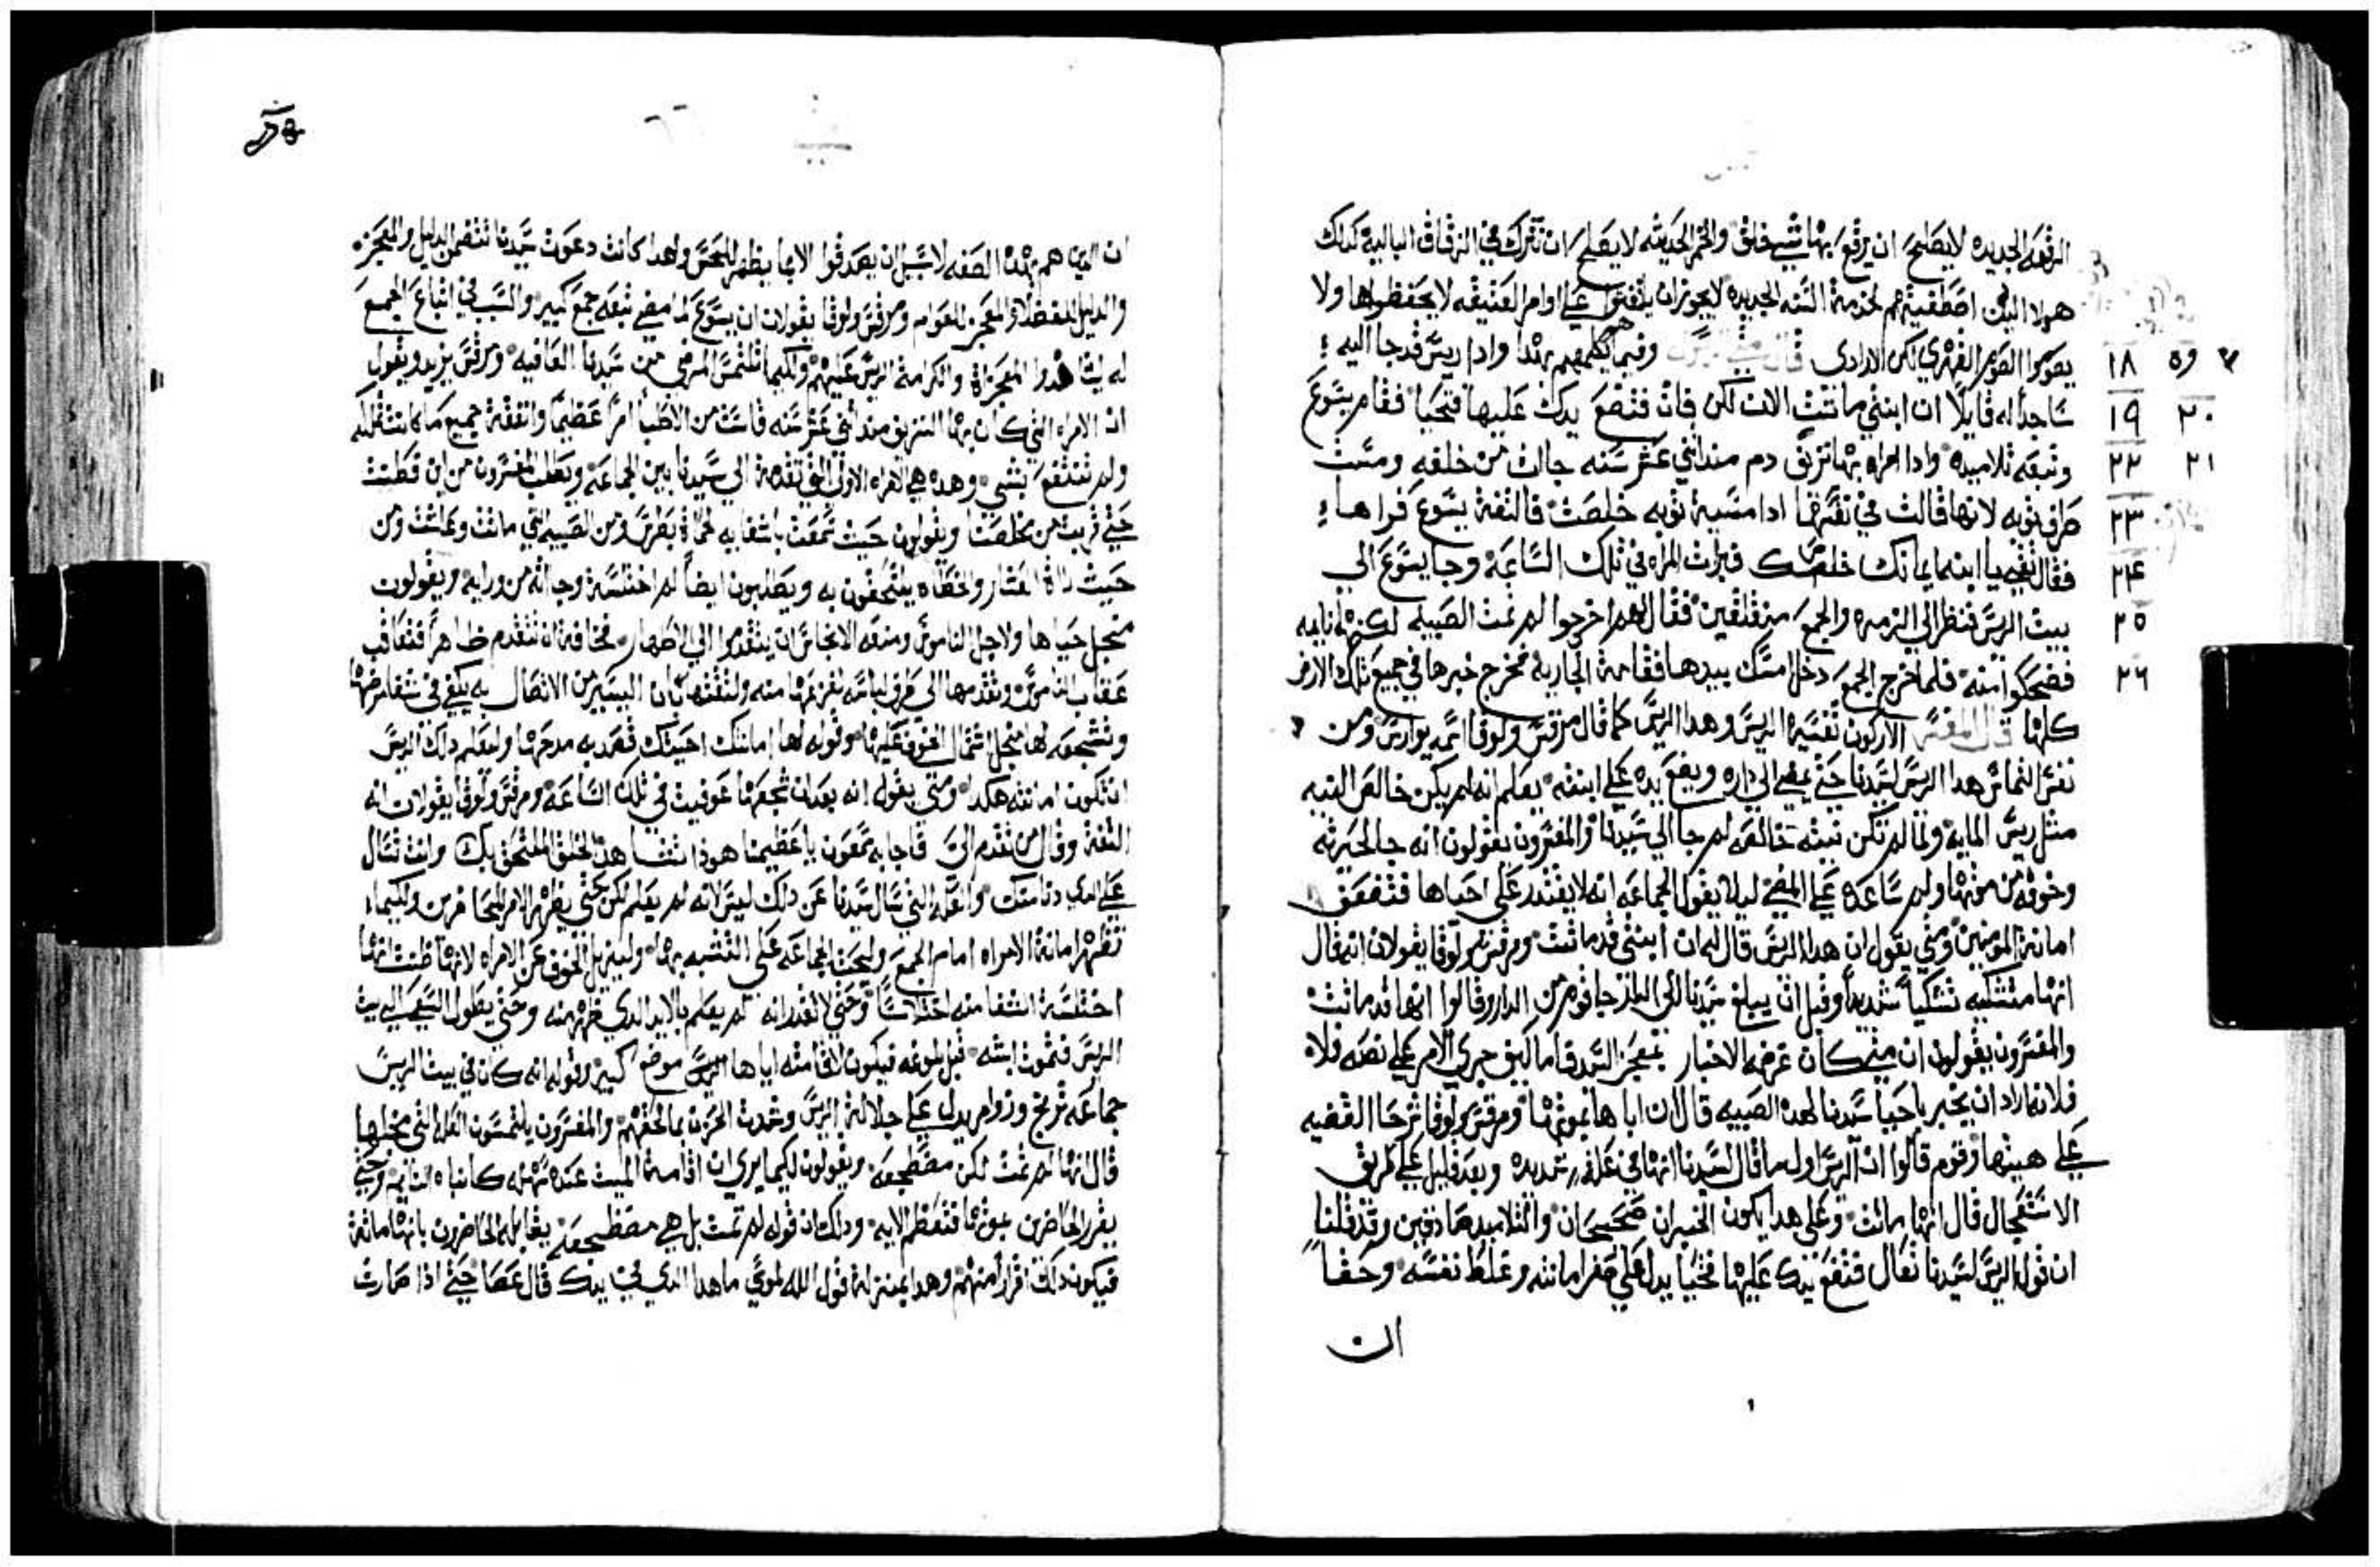 الرقعه الجديده لا يصلح ان يرقع بها شي خلق والخمر الحديثه لا يصلح ان تترك في الزقاق الباليه كدلك
هولا الدين اصطفيتهم لخدمة السنه الجديده لا يجوز ان يلفتوا على اوامر العتيقه لا يحفظوها ولا
يصوموا الصوم القهري لكن الارادي قال متي وفيما يكلمهم بهدا وادا ريس قد جا اليه
١٨ ٥٩
ساجدا له قايلا ان ابنتي ماتت الان لكن فات فتضع يدك عليها فتحيا فقام يسوع
١٩ ٢٠
وتبعه تلاميده وادا امراه بها نزيف دم مند اثني عشر سنه جات من خلفه ومست
٢٢ ٢١
طرف ثوبه لانها قالت في نفسها ادا مسية ثوبه خلصت فالتفة يسوع فراها
٢٣
فقال ثقي يا ابنه ايمانك خلصك فبرات المراه في تلك الساعة وجا يسوع الى
٢٤
بيت الريس فنظر الى الزمره والجمع منقلقين فقال لهم اخرجوا لم تمت الصبيه لكنها نايمه
٢٥
فضحكوا منه فلما اخرج الجمع دخل امسك بيدها فقامة الجارية فخرج خبرها في جميع تلك الارض
٢٦
كلها قال المفسر الاركون تفسيره الريس وهدا الريس كما قال مرقس ولوقا اسمه يوارس ومن
نفس التماس هدا الريس لسيدنا حتى يمضي الى داره ويضع يده على ابنته يعلم انه لم يكن خالص النيه
مثل ريس المايه ولما لم تكن نيته خالصه لم جا الى سيدنا والمفسرون يقولون انه جا لحيرته
وخوفه من موتها ولم ساعده على المضي ليلا يقول الجماعه انه لا يقتدر على احياها فتضعف
امانة المومنين ومتي يقول ان هدا الريس قال له ان ابنتي قد ماتت ومرقس ولوقا يقولان انه قال
انها متشكيه تشكيا شديدا وقبل ان يبلغ سيدنا الى الدار جا قوم من الدار وقالوا انها قد ماتت
والمفسرون يقولون ان متي كان غرضه الاخبار بمعجز السيد فاما كيف جرى الامر على نصه فلا
فلانه اراد ان يخبر باحيا سيدنا لهده الصبيه قال ان اباها بموتها ومرقس ولوقا شرحا القضيه
على هيتها وقوم قالوا ان الريس اول ما قال لسيدنا انها في علة شديده وبعد قليل على طريق
الاستعجال قال انها ماتت وعلى هدا يكون الخبران صحيحان والتلاميد صادقين وقد قلنا
ان قول الريس لسيدنا تعال فتضع يدك عليها فتحيا يدل على صغر امانته وغلط نفسه وحقا
ان
ان الدين هم بهده الصفه لا سبيل ان يصدقوا الا بما يظهر للحس ولهدا كانت دعوت سيدنا تتضمن الدليل والمعجزه
والدليل للفضلا والمعجز للعوام ومرقس ولوقا يقولان ان يسوع لما مضى تبعه جمع كبير والسبب في اتباع الجمع
له ليشاهدوا المعجزة والكرامة الريس عليهم ولكيما تلتمس المرضى من سيدنا العافيه ومرقس يزيد ويقول
ان الامراه التي كان بها النزيف مند اثني عشر سنه قاست من الاطبا امرا عظيما وانفقة جميع ما كانت تملكه
ولم تنتفع بشي وهده هي الامراه الاولى التي تقدمة الى سيدنا بين الجماعة ويطلب المفسرون من اين فطنت
حتى قربت من مخلصنا ويقولون حيث سمعت باشفايه لحماة بطرس ومن الصبيه التي ماتت وعاشت ومن
حيث رات العشار والخطاه يلتحقون به ويطلبون ايضا لم اختلسة وجاته من ورايه ويقولون
من اجل حياها ولاجل الناموس ومنعه الانجاس ان يتقدموا الى الاطهار فخافة ان تتقدم ظاهرا فتعاقب
عقاب الناموس وتقدمها الى طرف لباسه لفزعها منه ولثقتها بان اليسير من الاتصال به يكفي في شفا مرضها
وتشجيعه لها من اجل اشتمال الخوف عليها وقوله لها امانتك احيتك قصد به مدحها وليعلم دلك الريس
ان تكون امانته هكدا ومتي يقول انه بعد ان شجعها عوفيت في تلك الساعة ومرقس ولوقا يقولان انه
التفة وقال من تقدم الي فاجابه شمعون يا عظيمنا هودا نفسا هدا الخلق الملتحق بك وانت تسال
على الدي دنا منك والعلة التي سال سيدنا عن دلك ليس لانه لم يعلم لكن حتى يظهر الامر للحاضرين ولكيما
تظهر امانة الامراه امام الجمع وليحث الجماعه على التشبه بها وليزيل الخوف عن الامراه لانها ظنت انها
اختلسة الشفا منه اختلاسا وحتى لا تقدر انه لم يعلم بالايد الدي ظهر منه وحتى يطول السعي الى بيت
الريس فتموت ابنته قبل بلوغه فيكون لاقامته اياها موضع كبير وقوله انه كان في بيت الريس
جماعه تزمر وزوامر يدل على جلالة الريس وشدت الحزن بما لحقهم والمفسرون يلتمسون العله التي من اجلها
قال انها لم تمت لكن مضطجعه ويقولون لكيما يرى ان اقامة الميت عنده سهله كانباه النايم وحتى
يقرر الحاضرين بموتها فتعظم الايه ودلك ان قوله لم تمت بل هي مضطجعه يقابله الحاضرون بانها ماتة
فيكون دلك اقرارا منهم وهدا بمنزلة قول الله لموسى ما هدا الدي في يدك قال عصا حتى اذا صارت